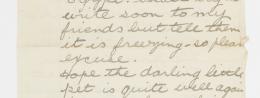 write soon to my
friends but tell them
it is freezing - so please
excuse.
Hope the darling little
pet is quite well again